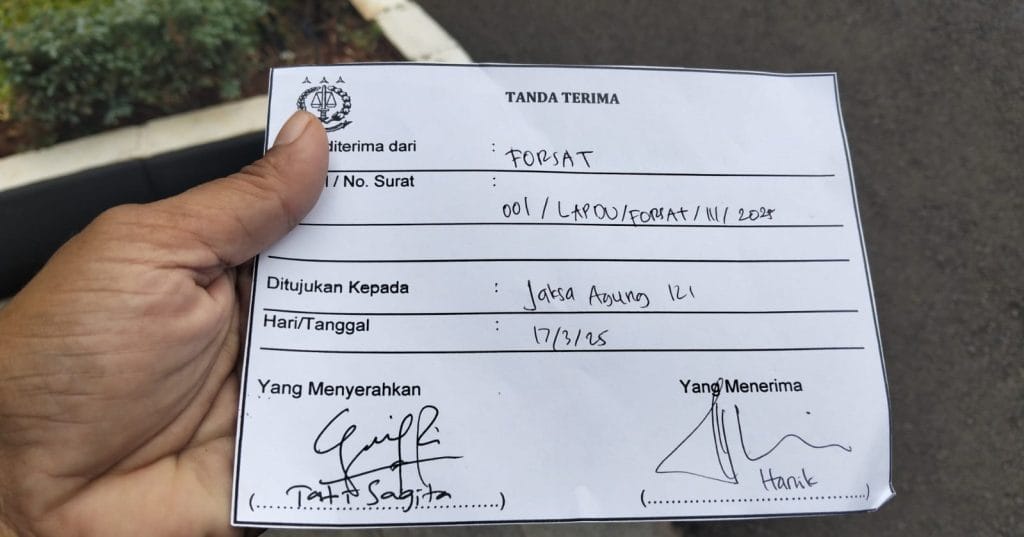 TANDA TERIMA
diterima dari : FORSAT
l / No. Surat :
001 / LAPDU/FORSAT / III / 2025
Ditujukan Kepada : Jaksa Agung
Hari/Tanggal : 17/3/25
Yang Menyerahkan Yang Menerima
Hanik
(..........) (..........)
Sagita